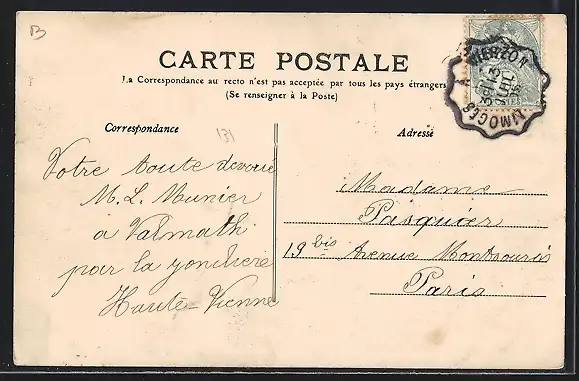 B
CARTE POSTALE
La Correspondance au recto n'est pas acceptée par tous les pays étrangers
(Se renseigner à la Poste)
VIERZON
A
LIMOGES
Correspondance
131
Adresse
Votre toute dévouée
M. L. Munier
a Valmath
par la Jonchere
Haute-Vienne
Madame
Pasquier
19 bis Avenue Montsouris
Paris